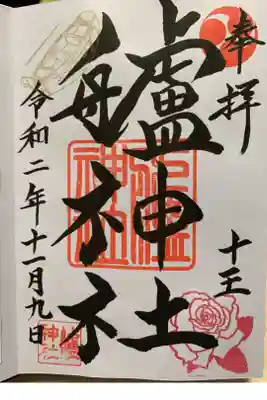 奉拝
十王
艫神社
令和二年十一月九日